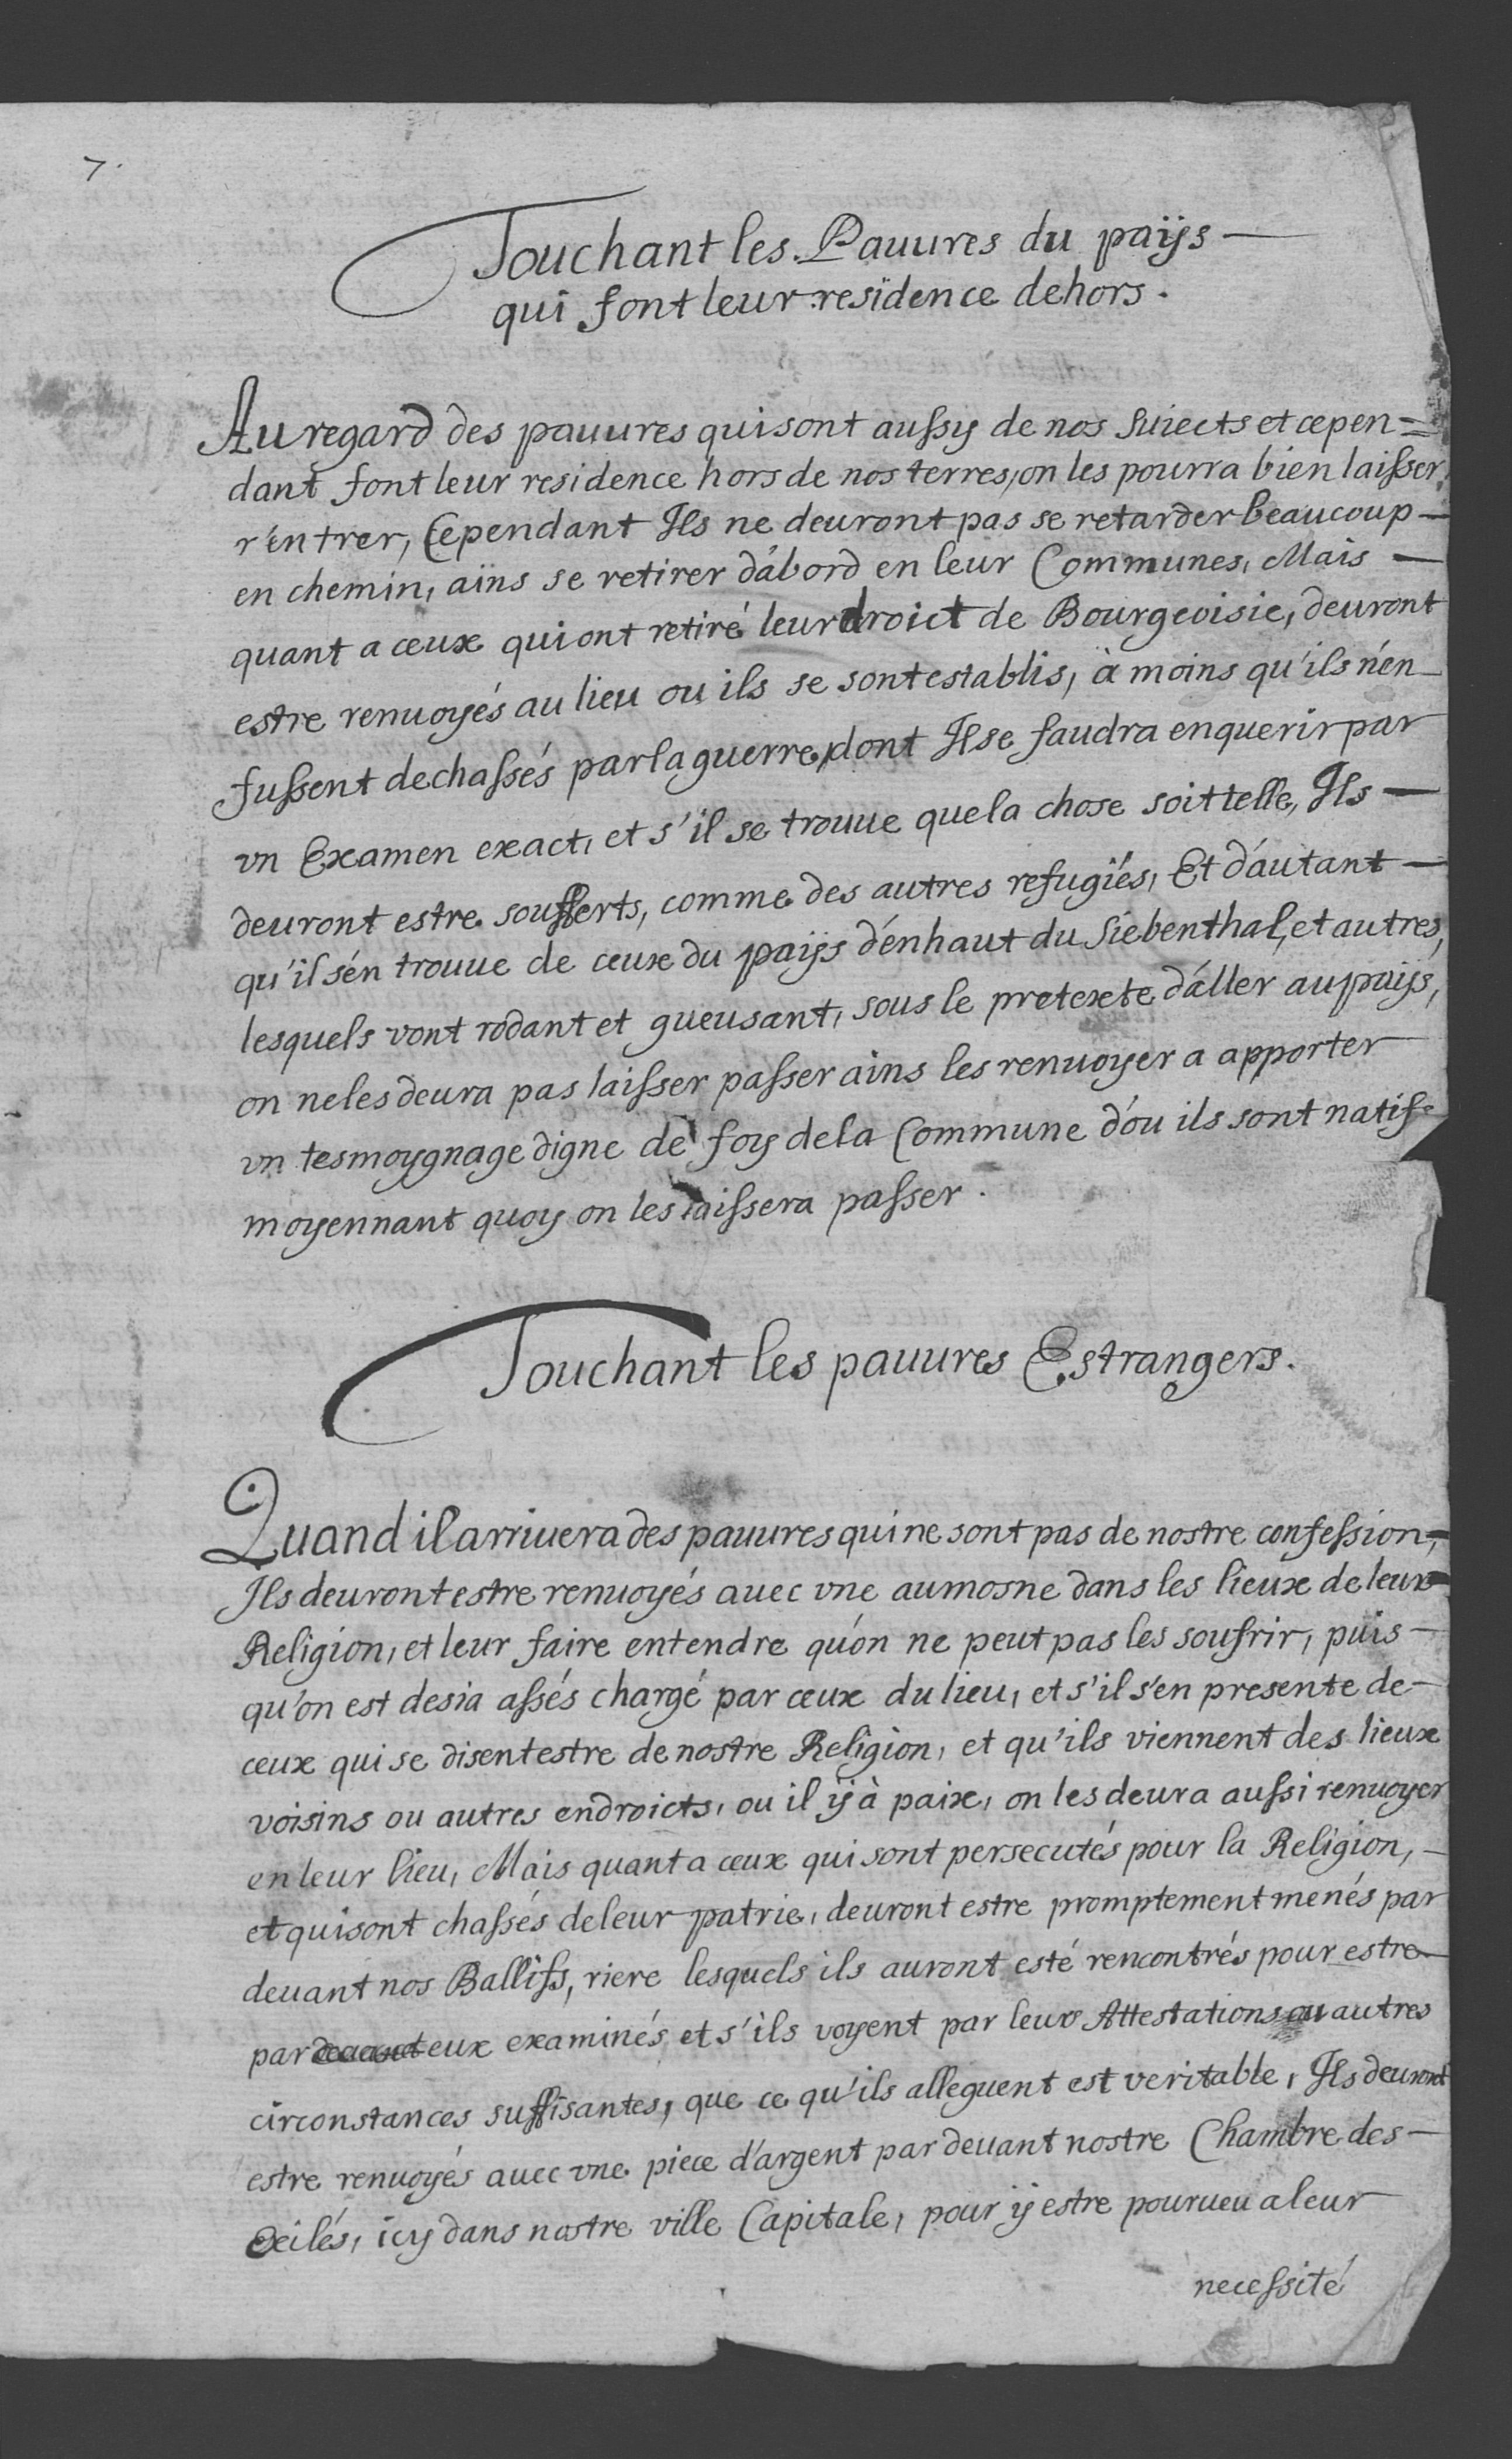 7.
Touchant les Pauures du païjs —
qui font leur residence dehors.
Au regard des pauures qui sont aussy de nos suiects et cepen=
dant font leur residence hors de nos terres, on les pourra bien laisser
r'entrer, Cependant Ils ne deuront pas se retarder beaucoup —
en chemin, ains se retirer d'abord en leur Communes, Mais —
quant a ceux qui ont retiré leur droict de Bourgeoisie, deuront
estre renuoyés au lieu ou ils se sont establis, à moins qu'ils n'en
fussent dechassés par la guerre, dont Il se faudra enquerir par
vn Examen exact, et s'il se trouue que la chose soit telle, Ils —
deuront estre soufferts, comme des autres refugiés, Et d'autant —
qu'il s'en trouue de ceux du païjs d'enhaut du Siebenthal, et autres,
lesquels vont rodant et gueusant, sous le pretexte d'aller au païjs,
on ne les deura pas laisser passer ains les renuoyer a apporter
vn tesmoygnage digne de foy de la Commune d'ou ils sont natifs
moyennant quoy on les laissera passer.
Touchant les pauures Estrangers.
Quand il arriuera des pauures qui ne sont pas de nostre confession,
Ils deuront estre renuoyés auec vne aumosne dans les lieux de leur
Religion, et leur faire entendre qu'on ne peut pas les soufrir, puis —
qu'on est desia assés chargé par ceux du lieu, et s'il s'en presente de —
ceux qui se disent estre de nostre Religion, et qu'ils viennent des lieux
voisins ou autres endroicts, ou il ij à paix, on les deura aussi renuoyer
en leur lieu, Mais quant a ceux qui sont persecutés pour la Religion, —
et qui sont chassés de leur patrie, deuront estre promptement menés par
deuant nos Ballifs, riere lesquels ils auront esté rencontrés pour estre —
par deuant eux examinés et s'ils voyent par leurs Attestations ou autres
circonstances suffisantes, que ce qu'ils alleguent est veritable, Ils deuront
estre renuoyés auec vne piece d'argent par deuant nostre Chambre des —
Exilés, icy dans nostre ville Capitale, pour ij estre pourueu a leur
necessité